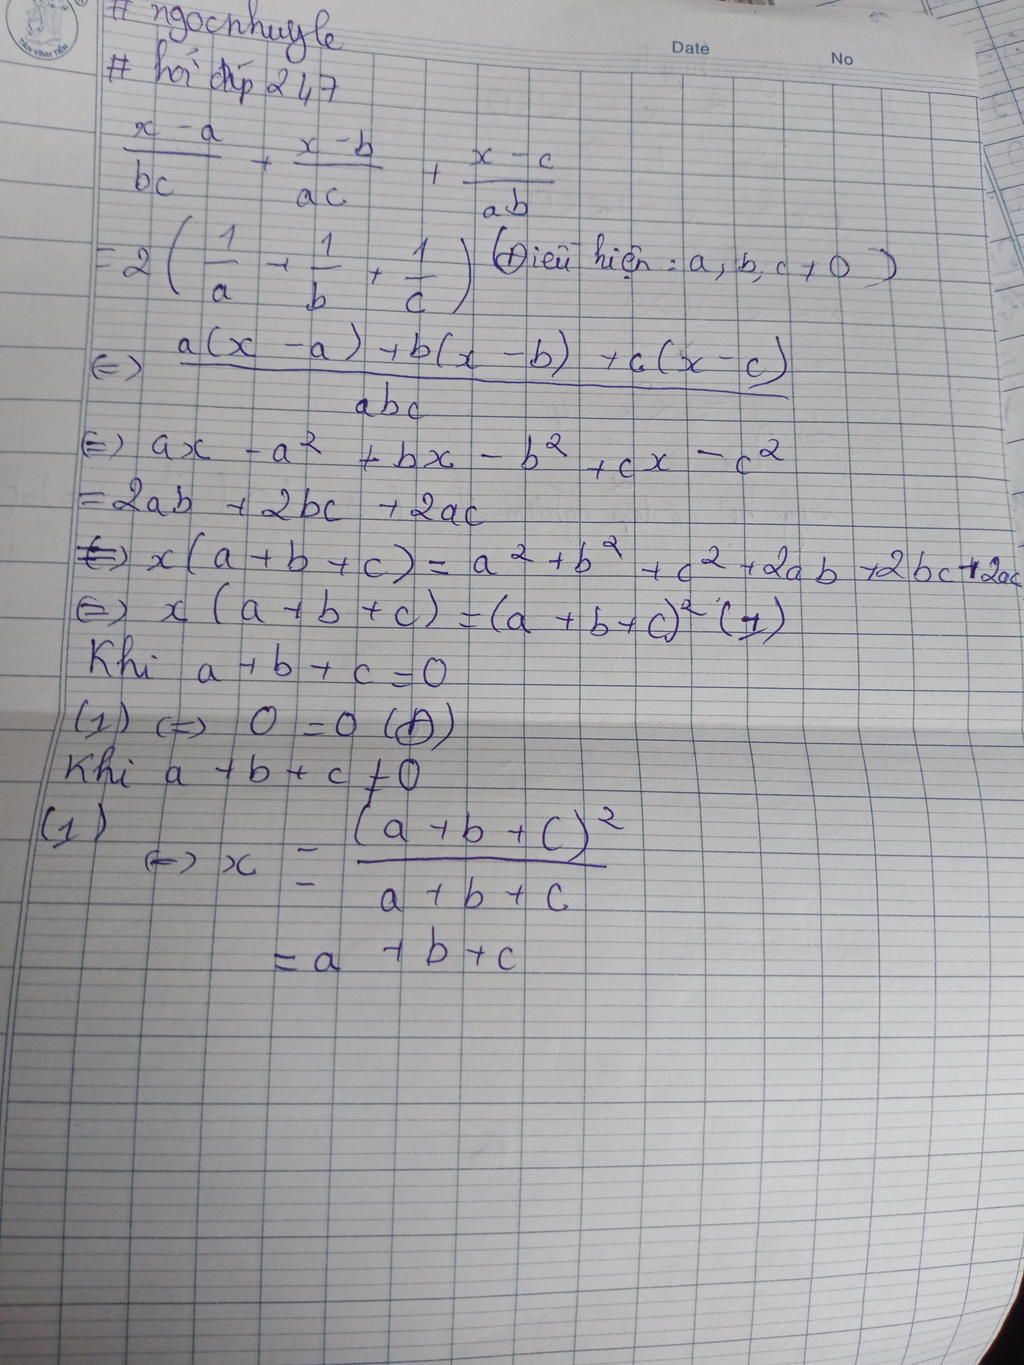 TÂN VĨNH TIẾN
Date
No
# ngocnhuyle
# hỏi đáp 247
x - a / bc + x - b / ac + x - c / ab
= 2 ( 1/a + 1/b + 1/c ) (Điều kiện : a, b, c ≠ 0 )
<=> a(x - a) + b(x - b) + c(x - c) / abc
<=> ax - a² + bx - b² + cx - c²
= 2ab + 2bc + 2ac
<=> x(a + b + c) = a² + b² + c² + 2ab + 2bc + 2ac
<=> x (a + b + c) = (a + b + c)² (1)
Khi a + b + c = 0
(1) <=> 0 = 0 (Đ)
Khi a + b + c ≠ 0
(1)
<=> x = (a + b + c)² / a + b + c
= a + b + c